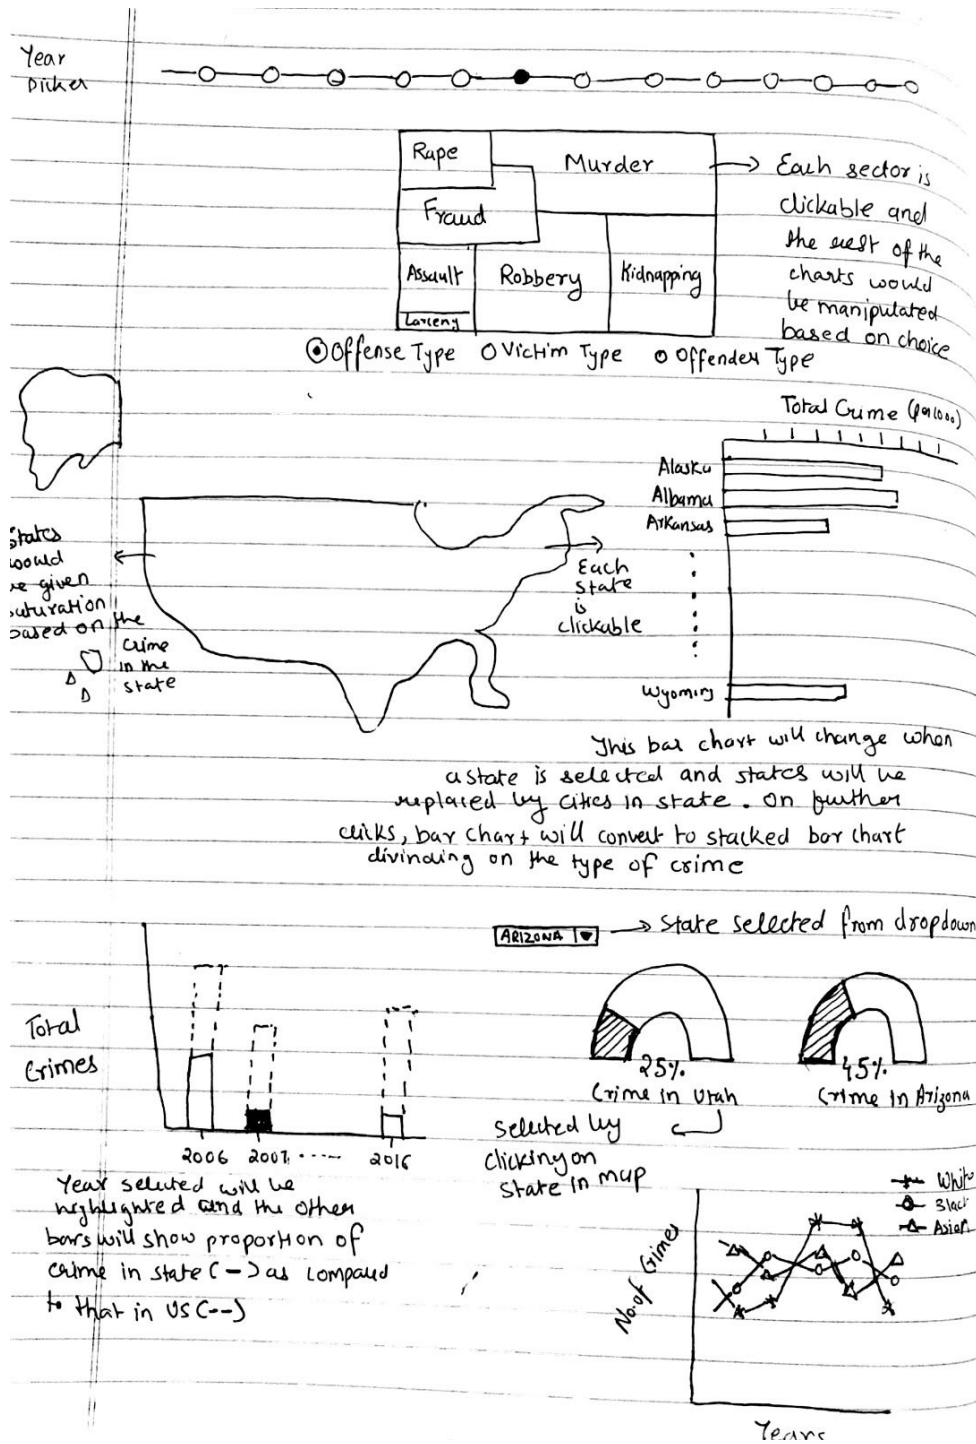 Year
Picker
Rape
Murder
Fraud
Assault
Robbery
Kidnapping
Larceny
Each sector is
clickable and
the rest of the
charts would
be manipulated
based on choice
Offense Type Victim Type Offender Type
Total Crime (per 1000)
Alaska
Albama
Arkansas
Wyoming
States
would
be given
saturation
based on the
crime
in the
state
Each
state
is
clickable
This bar chart will change when
a state is selected and states will be
replaced by cities in state. On further
clicks, bar chart will convert to stacked bar chart
divinding on the type of crime
ARIZONA
State selected from dropdown
Total
Crimes
2006 2007 ..... 2016
25%
Crime in Utah
45%
Crime in Arizona
selected by
clicking on
state in map
Year selected will be
highlighted and the other
bars will show proportion of
crime in state (-) as compared
to that in US (--)
White
Black
Asian
No. of Crimes
Years